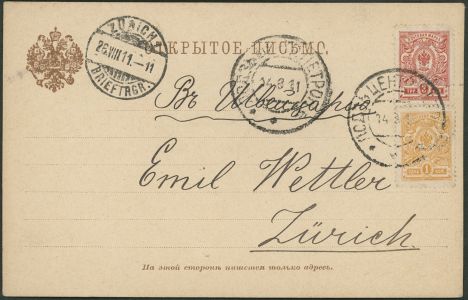 ОТКРЫТОЕ ПИСЬМО.
ZÜRICH
26.VIII.11.–11
BRIEFTRGR.
14.8.11
14.8
3
1
Въ Швейцарію
Emil Wettler
Zürich.
На этой сторонѣ пишется только адресъ.